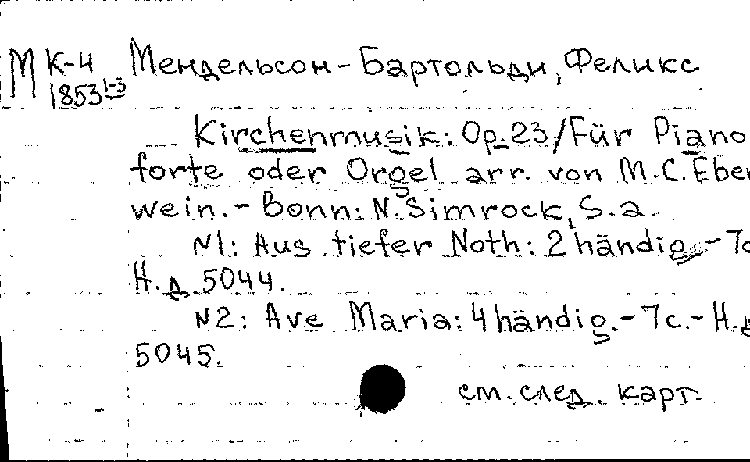 М К-4 Мендельсон-Бартольди, Феликс
1853 1-3
Kirchenmusik: Op. 23/Für Piano
forte oder Orgel arr. von M.C. Eber
wein.- Bonn: N. Simrock, S.a.
N1: Aus tiefer Noth: 2 händig.- 7с
Н.д. 5044.
N2: Ave Maria: 4 händig.- 7с.- Н.д
5045.
см. след. карт.